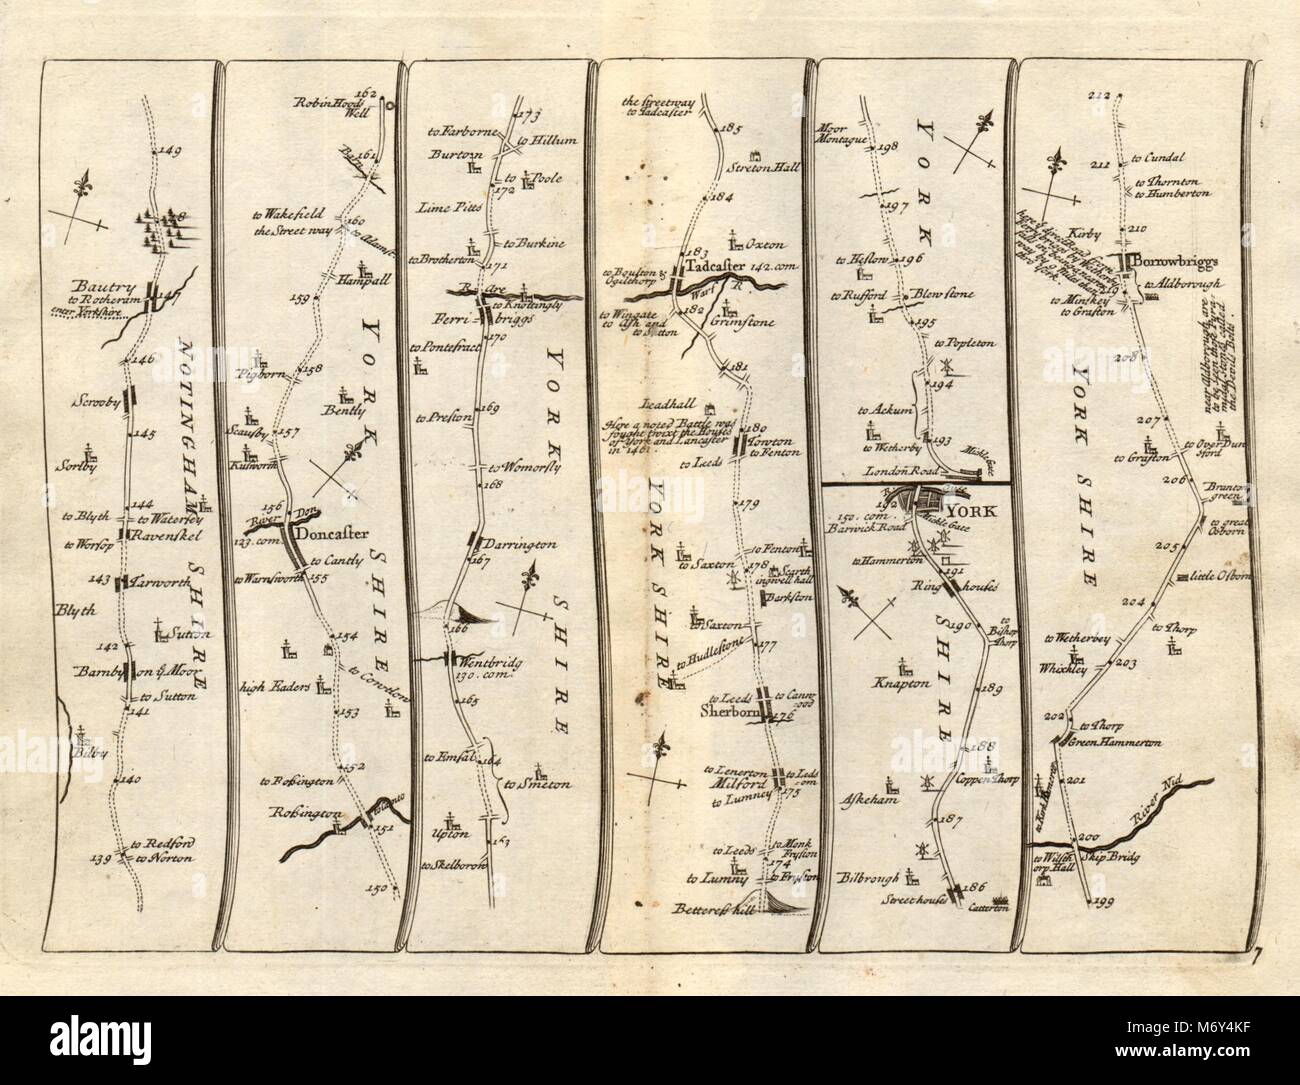 149
148
Bautry
to Rotheram
147
enter Yorkshire
146
Scrooby
145
Sorlby
144
to Blyth
to Waterfey
to Worsop
Ravenskel
143
Tarworth
Blyth
Sutton
142
Barnby
on y Moor
to Sutton
141
Bilby
140
to Redford
139
to Norton
NOTINGHAM SHIRE
162
Robin Hoods
Well
161
to Wakefield
160
the Street way
to Adams
Hampall
159
Pigborn
158
Bently
Scausby
157
Kusworth
156
River Don
123.com
Doncaster
to Cantly
to Warnsworth
155
154
to Coneslow
high Eaders
153
152
to Roßington
Roßington
151
150
YORK SHIRE
173
to Farborne
to Hillum
Burton
to
Poole
172
Lime Pitts
to Burkine
to Brotherton
171
R. Are
to Knottingly
Ferri
briggs
170
to Pontefract
169
to Preston
to Womersly
168
Darrington
167
166
Wentbridg
130.com
165
to Emsal
164
to Smeton
Upton
163
to Skelborow
YORK SHIRE
the streetway
to Tadcaster
185
Streton Hall
184
Oxton
183
to Boulton &
Ogilthorp
Tadcaster 142.com
Warf R
182
to Wingate
to Ash and
to Sutton
Grimstone
181
Leadhall
Here a noted Battle was
fought twixt the Houses
of York and Lancaster
in 1461
180
Towton
to Fenton
to Leeds
179
to Fenton
to Saxton
178
Scarth
ingwell hall
Barkston
to Saxton
177
to Hudlestone
to Leeds
to Cann
wood
Sherborn
176
to Lenerton
to Leds
om
Milford
to Lumney
175
to Leeds
to Monk
Fryston
174
to Lumny
to Fryston
Betteress hill
YORK SHIRE
Moor
Montague
198
197
to Heslow
196
to Rufford
Blew stone
195
to Popleton
194
to Ackum
193
to Wetherby
London Road
Mickle Gate
192
YORK
150.com
Barwick Road
Mickle Gate
to Hammerton
191
Ring houses
190
to
Bishop
Thorp
Knapton
189
188
Coppen Thorp
Askeham
187
Bilbrough
186
Street houses
Catterton
YORK SHIRE
212
211
to Cundal
to Thornton
to Humberton
here ye direct Road from
210
Kirby
Borrowbriggs
to Aldborough
to Minskey
to Grafton
near Aldborough are
to be seen those Pyra-
midal stones called
the Devils Bolts.
208
207
to Over Bun
sford
to Grafton
206
Brunton
green
to great
Osborn
205
little Osborn
204
to Thorp
to Wetherbey
Whixkley
203
202
to Thorp
Green Hammerton
201
River Nid
200
Skip Bridg
to Wilsth
orp Hall
199
YORK SHIRE
7
alamy
M6Y4KF
alamy
Image ID: M6Y4KF
www.alamy.com